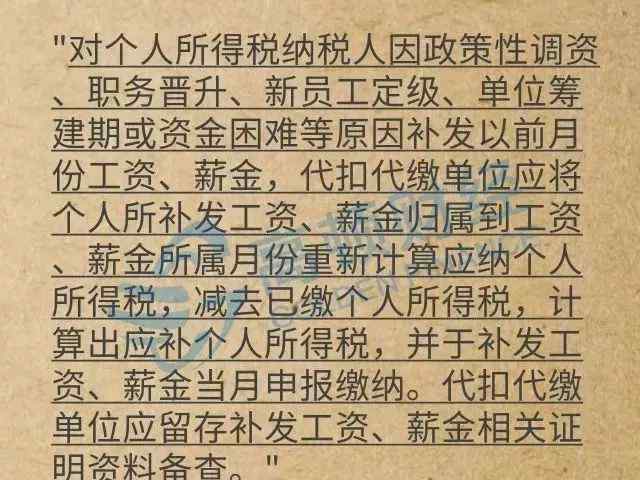 "对个人所得税纳税人因政策性调资
、职务晋升、新员工定级、单位筹
建期或资金困难等原因补发以前月
份工资、薪金，代扣代缴单位应将
个人所补发工资、薪金归属到工资
、薪金所属月份重新计算应纳个人
所得税，减去已缴个人所得税，计
算出应补个人所得税，并于补发工
资、薪金当月申报缴纳。代扣代缴
单位应留存补发工资、薪金相关证
明资料备查。"